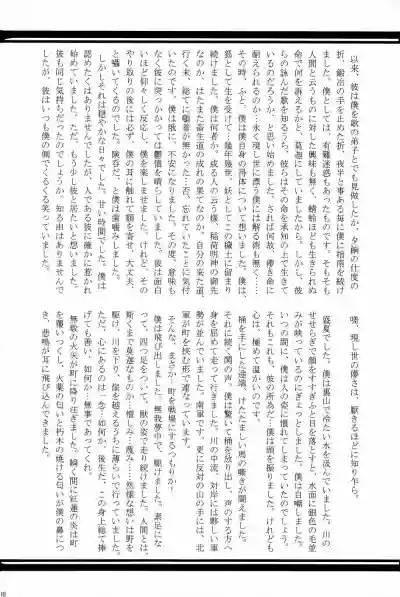 以来、彼は僕を歌の弟子とでも見做したか、夕餉の仕度の
折、鍛冶の手を止めた折、夜半と事ある毎に僕に指南を続け
ました。僕としては、有難迷惑もあったものです。そもそも
人間と云うものに対した興味も無く、蜻蛉ほども生きられぬ
命で何を訴えるかと、莫迦にしていましたから。しかし、彼
らの詠んだ歌を知るうち、彼らはその命を承知の上で生きて
いるのだろうか、と思い始めました。されば何故、儚き命に
耐えられるのか…永く現し世に漂う僕には解る術も無くて…
その時ふと、僕は僕自身の得体について想いました。僕は、
狐として生を受けて…幾年幾世、妖としてこの穢土に留まり
続けました。僕は何者か、或る人の云う様、稲荷明神の御先
なのか、はたまた畜生道の成れの果てなのか。自分の来た道
行く末、総てに頓着が無かった…否、忘れていたことに気付
いたのです。僕は俄に、不安になりました。その度、意味も
なく彼に突っかかっては鬱憤を晴らしていました。彼は面白
いほど仰々しく反応し、僕を楽しませました。けれど、その
やり取りの後には必ず、僕の耳に触れて額を寄せ、大丈夫、
と囁いてくるのでした。険呑だ、と僕は歯噛みしました。
しかしそれは穏やかな日々でした。甘い時間でした。僕は
認めたくはありませんでしたが、人である彼に確かに惹かれ
始めていました。ただ、もう少し彼と居たいと思いました。
彼も同じ気持ちだったのでしょうか。知る由はありませんで
したが、彼はいつも僕の側でくるくる笑っていました。
噫、現し世の儚さは、厭きるほどに知り乍ら。
盛夏でした。僕は裏山で冷たい水を汲んでいました。川の
せせらぎで顔をすすぎふと目を落とすと、水面に銀色の毛並
みが映っているのにぎょっとしました。僕は自嘲しました。
いつの間に、僕は人の姿に慣れてしまっていたのでしょう。
それもこれも、彼の所為だ。僕は頭を振りました。けれども
心は、極めて温かいのです。
桶を手にした途端、けたたましい馬の嘶きが聞えました。
それに続く、鬨の声。僕は驚いて桶を放り出し、声のする方へ
身を屈めて走って行きました。川の中流、対岸には夥しい軍
勢が並んでいました。南軍です。更に反対の山の手には、北
軍が町を挟む形で連なっています。
そんな、まさか。町を戦場にするつもりか！
僕は飛び出しました。無我夢中で、駆けました。素足にな
って、四つ足をついて、獣の姿で走り続けました。人間とは、
斯くまで莫迦なものか…憎しみ…蔑み…然様な想いは野を
駆け、川を下り、崖を越えるうちに薄らいで行っていました。
ただ、心にあるのは一念…如何か、後生だ、この身上総て捧
げても善い、如何か…無事であってくれ。
無数の火矢が町に降り注ぎました。瞬く間に紅蓮の炎は町
を覆いつくし、火薬の匂いと朽木の焼ける匂いが僕の鼻につ
き、悲鳴が耳に飛び込んできました。